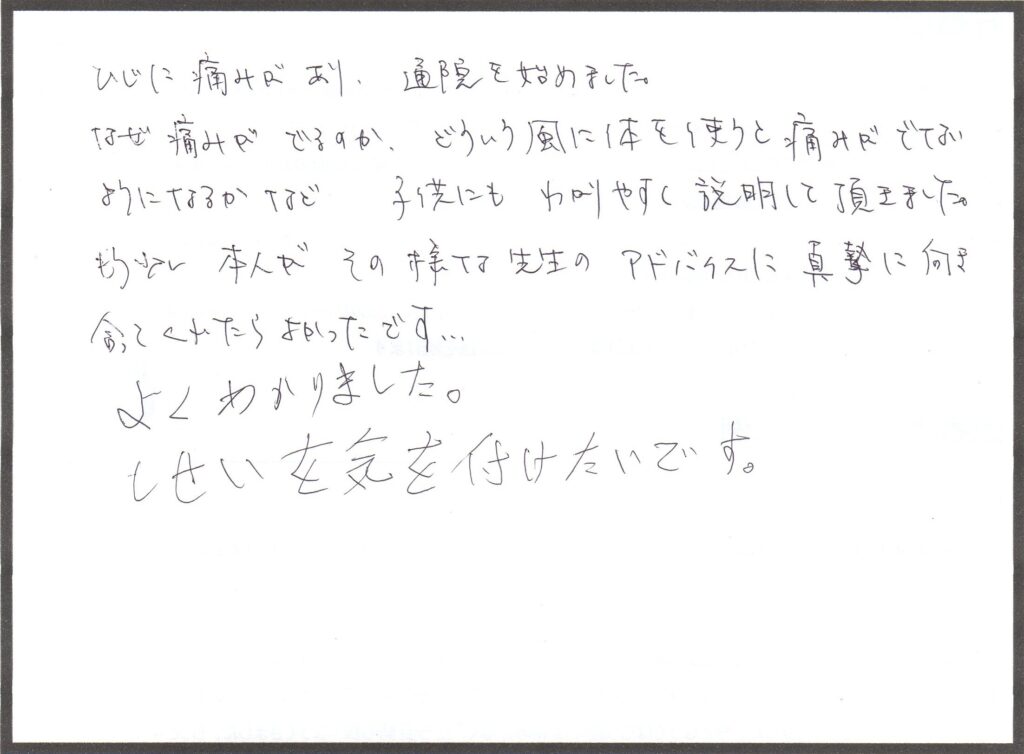 ひじに痛みがあり、通院を始めました。
なぜ痛みがでるのか、どういう風に体を使うと痛みがでない
ようになるかなど 子供にも わかりやすく説明して頂きました。
もう少し 本人が その様な先生の アドバイスに 真摯に向き
合ってくれたらよかったです…
よくわかりました。
しせいを気を付けたいです。